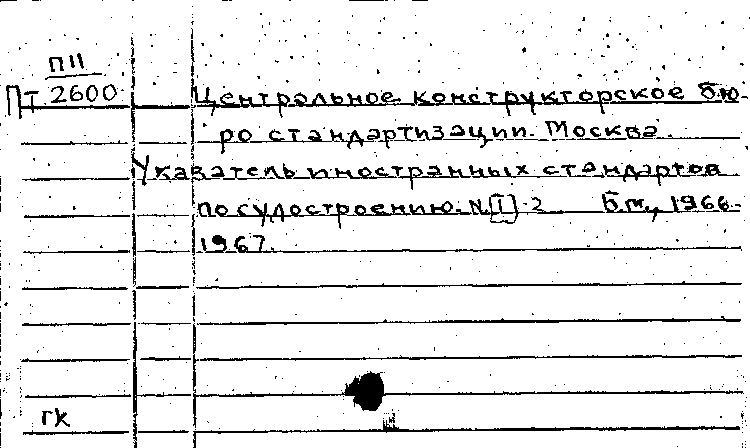 ПII
ПТ 2600 Центральное конструкторское бю-
ро стандартизации. Москва.
Указатель иностранных стандартов
по судостроению. N.[I]-2 Б.м., 1966-
1967.
ГК